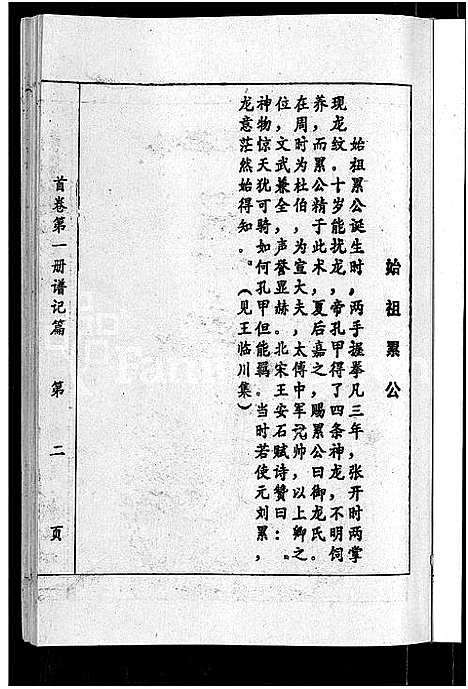 始祖累公
始祖累公诞生时，两手握拳凡三年，张开时两掌
现龙纹。十岁能扰龙，帝孔甲得了四条神龙，不明饲
养，而累公精于此术，夏后嘉之，赐累公曰御龙氏。
在周时为杜伯，为宣大夫，太傅中军元帅，以上卿之
位，文武兼全，声誉显赫。北宋王安石赋诗赞曰：
神物惊天犹可骑如何孔甲但能羁。当时若使元刘累，
龙意茫然始得知。。（见王临川集）
首卷第一册谱记篇 第 二 页